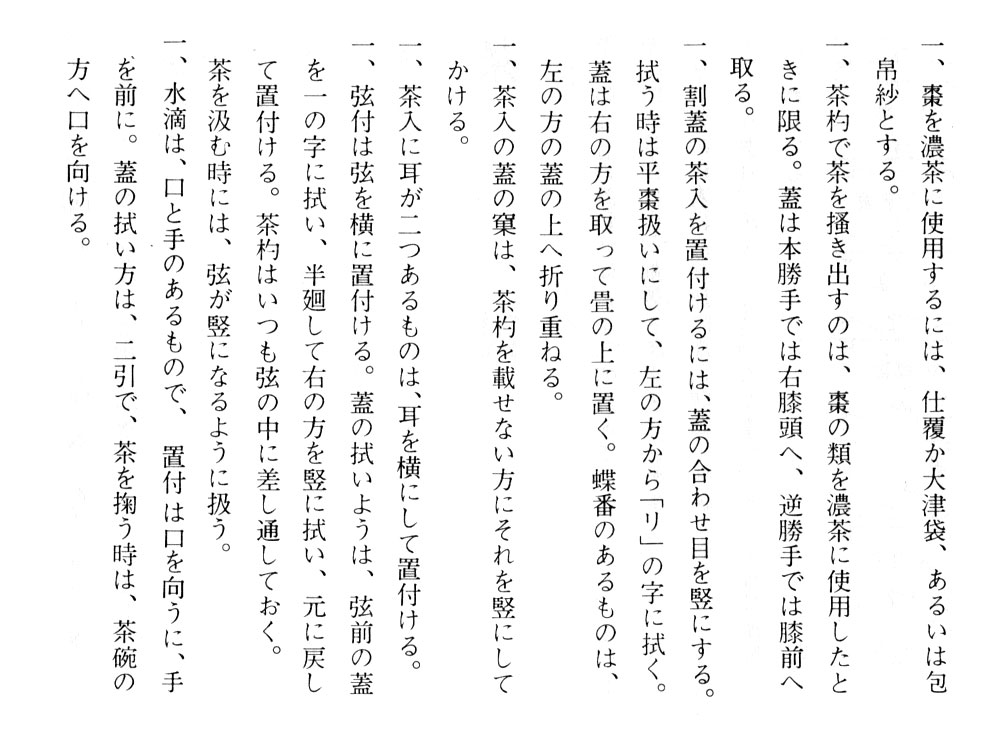 一、棗を濃茶に使用するには、仕覆か大津袋、あるいは包
帛紗とする。
一、茶杓で茶を掻き出すのは、棗の類を濃茶に使用したと
きに限る。蓋は本勝手では右膝頭へ、逆勝手では膝前へ
取る。
一、割蓋の茶入を置付けるには、蓋の合わせ目を竪にする。
拭う時は平棗扱いにして、左の方から「リ」の字に拭く。
蓋は右の方を取って畳の上に置く。蝶番のあるものは、
左の方の蓋の上へ折り重ねる。
一、茶入の蓋の窠は、茶杓を載せない方にそれを竪にして
かける。
一、茶入に耳が二つあるものは、耳を横にして置付ける。
一、弦付は弦を横に置付ける。蓋の拭いようは、弦前の蓋
を一の字に拭い、半廻して右の方を竪に拭い、元に戻し
て置付ける。茶杓はいつも弦の中に差し通しておく。
茶を汲む時には、弦が竪になるように扱う。
一、水滴は、口と手のあるもので、置付は口を向うに、手
を前に。蓋の拭い方は、二引で、茶を掬う時は、茶碗の
方へ口を向ける。